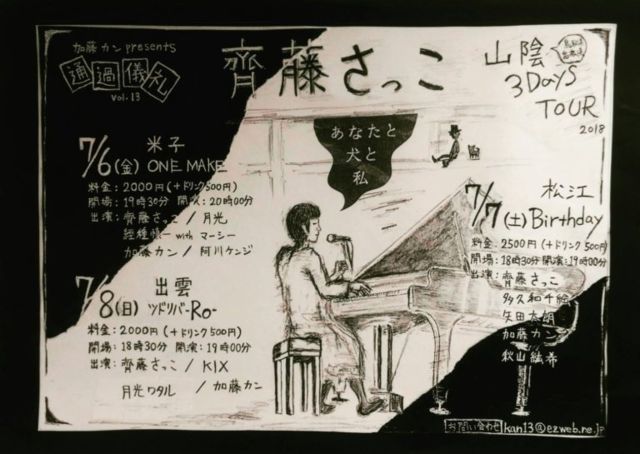 加藤カン presents
通過儀礼
vol.13
齊藤さっこ
山陰
3DAYS
TOUR
2018
あなたと
犬と
私
7/6(金) 米子
ONE MAKE
料金：2000円(＋ドリンク500円)
開場：19時30分 開演：20時00分
出演：齊藤さっこ / 月光
with マーシー
加藤カン / 阿川ケンジ
7/7(土) 松江
Birthday
料金：2500円(＋ドリンク500円)
開場：18時30分 開演：19時00分
出演：齊藤さっこ
多久和千絵
矢田太朗
加藤カン
秋山絃希
7/8(日) 出雲
ツドリバ-Ro-
料金：2000円(＋ドリンク500円)
開場：18時30分 開演：19時00分
出演：齊藤さっこ / KIX
月光ワタル / 加藤カン
お問い合わせ kan13@ezweb.ne.jp